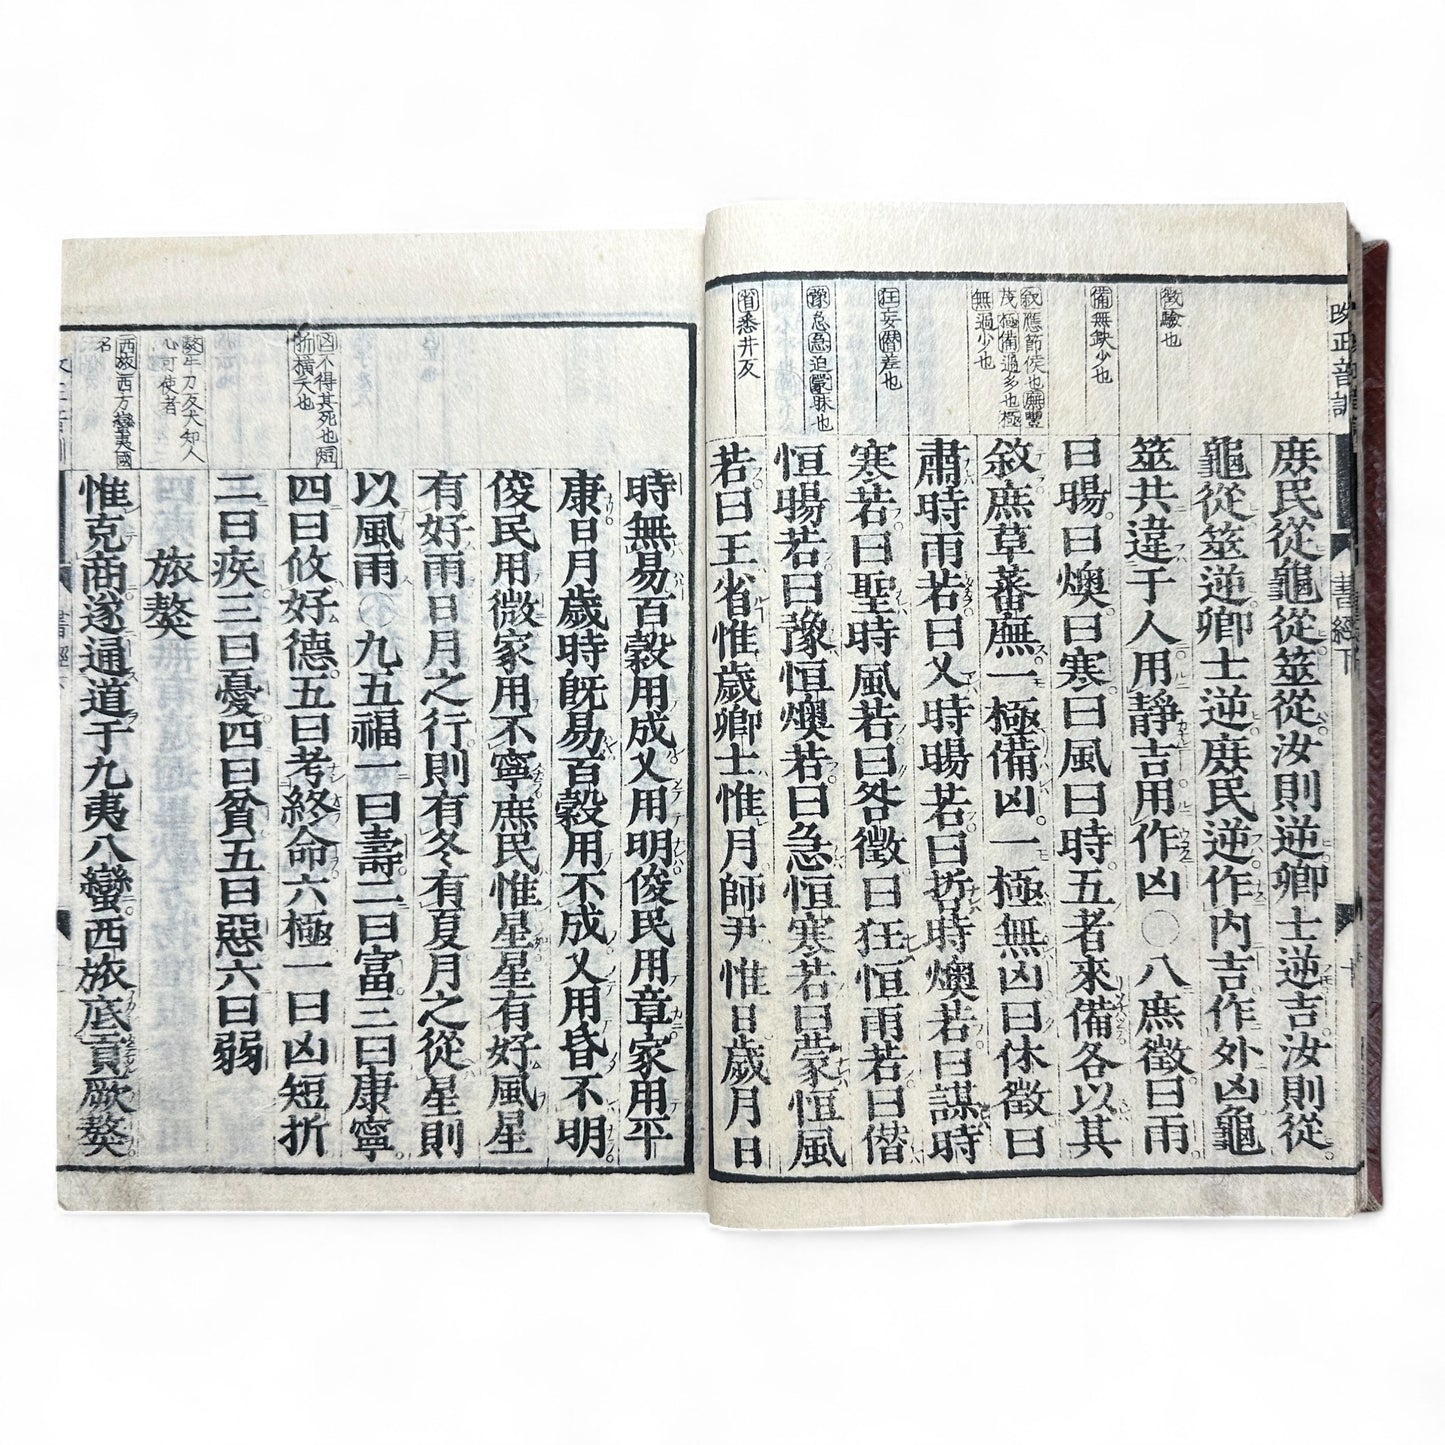 改正音訓
書經下
徴驗也
備無缺少也
敘應節候也廡豐
茂極備過多也極
無過少也
狂妄僭差也
豫怠急迫蒙昧也
省悉井反
庶民從龜從筮從汝則逆卿士逆吉汝則從
龜從筮逆卿士逆庶民逆作内吉作外凶龜
筮共違于人用靜吉用作凶〇八庶徴曰雨
曰暘曰燠曰寒曰風曰時五者來備各以其
敘庶草蕃廡一極備凶一極無凶曰休徴曰
肅時雨若曰乂時暘若曰哲時燠若曰謀時
寒若曰聖時風若曰咎徴曰狂恒雨若曰僭
恒暘若曰豫恒燠若曰急恒寒若曰蒙恒風
若曰王省惟歲卿士惟月師尹惟日歲月日
凶不得其死也短
折橫夭也
獒牛刀反犬知人
心可使者
西旅西方蠻夷國
名
時無易百穀用成乂用明俊民用章家用平
康日月歲時旣易百穀用不成乂用昏不明
俊民用微家用不寧庶民惟星星有好風星
有好雨日月之行則有冬有夏月之從星則
以風雨〇九五福一曰壽二曰富三曰康寧
四曰攸好德五曰考終命六極一曰凶短折
二曰疾三曰憂四曰貧五曰惡六曰弱
旅獒
惟克商遂通道于九夷八蠻西旅底貢厥獒
書經